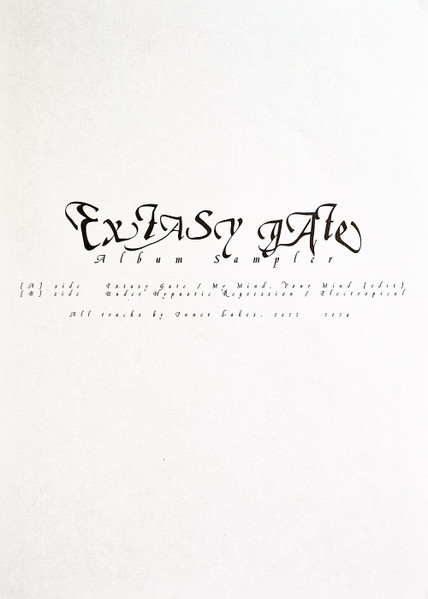 Extasy gate
Album Sampler
[A] side Extasy Gate / My Mind, Your Mind [edit]
[B] side Under Hypnotic Regression / Electropical
All tracks by Inner Lakes,